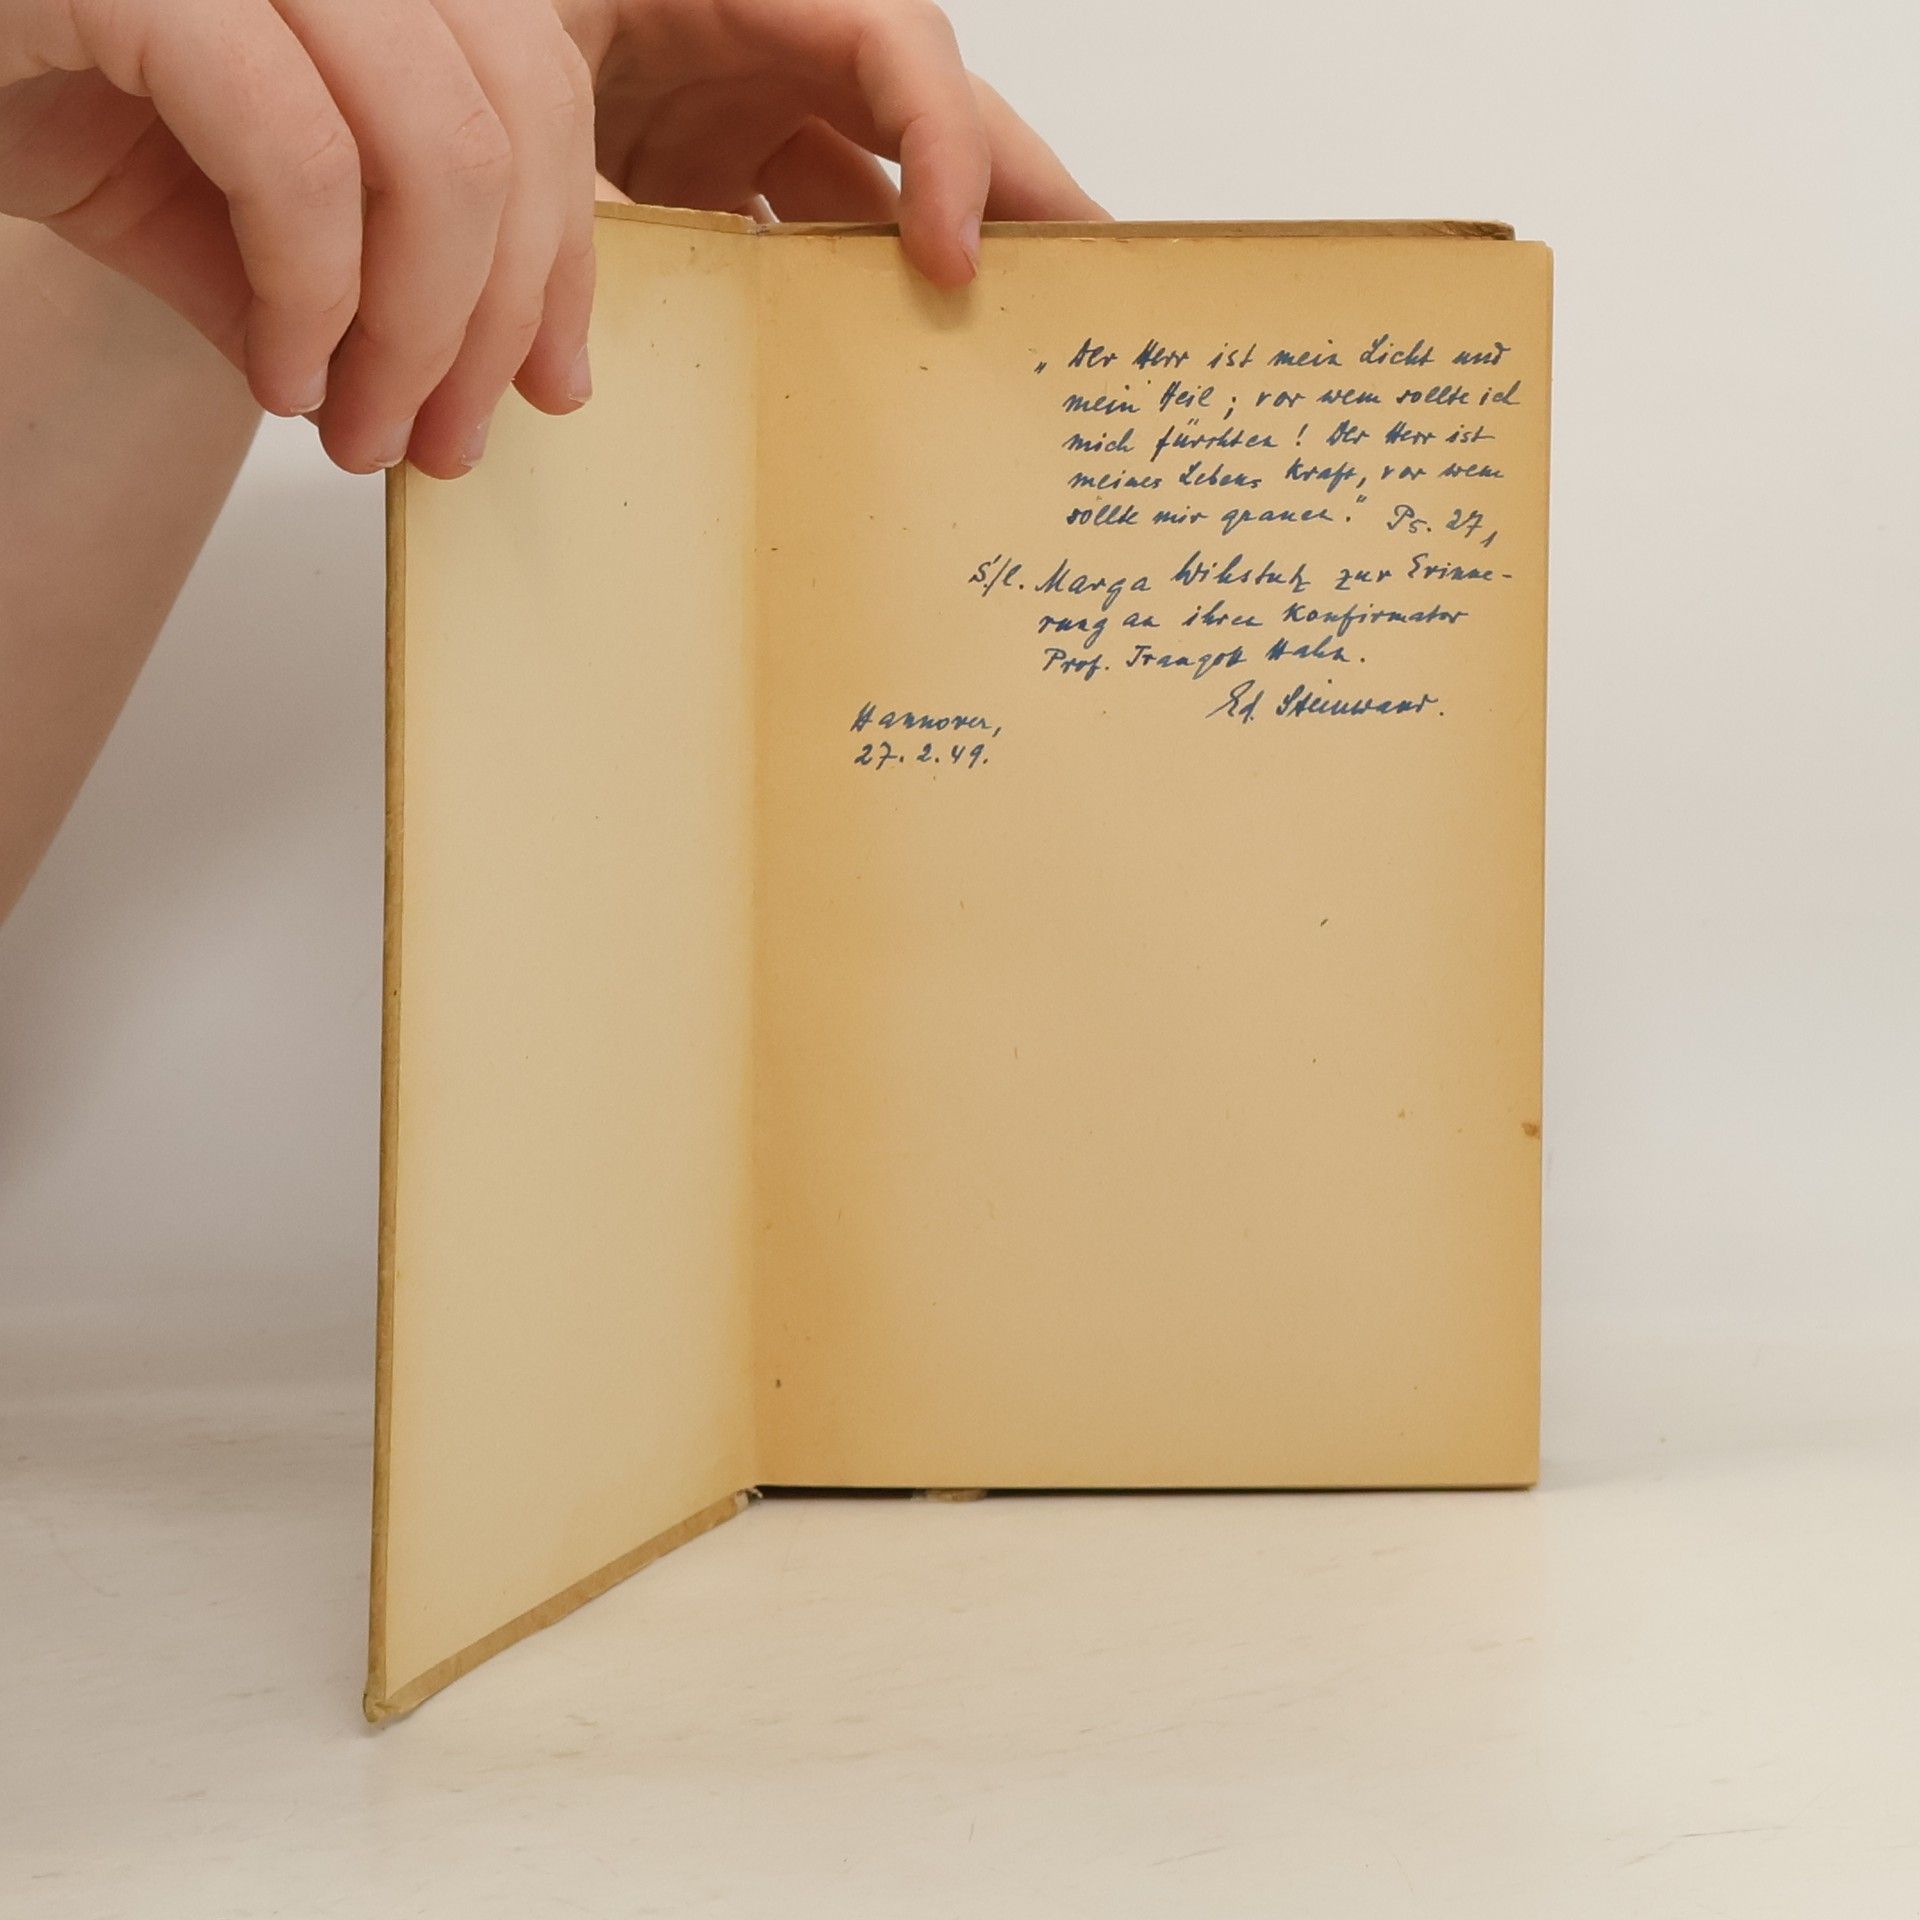 „Der Herr ist mein Licht und
mein Heil; vor wem sollte ich
mich fürchten! Der Herr ist
meines Lebens Kraft, vor wem
sollte mir grauen." Ps. 27, 1
S./l. Marga zur Erinne-
rung an ihren Konfirmator
Prof. Traugott Hahn.
Ed. Steinwand.
Hannover,
27. 2. 49.